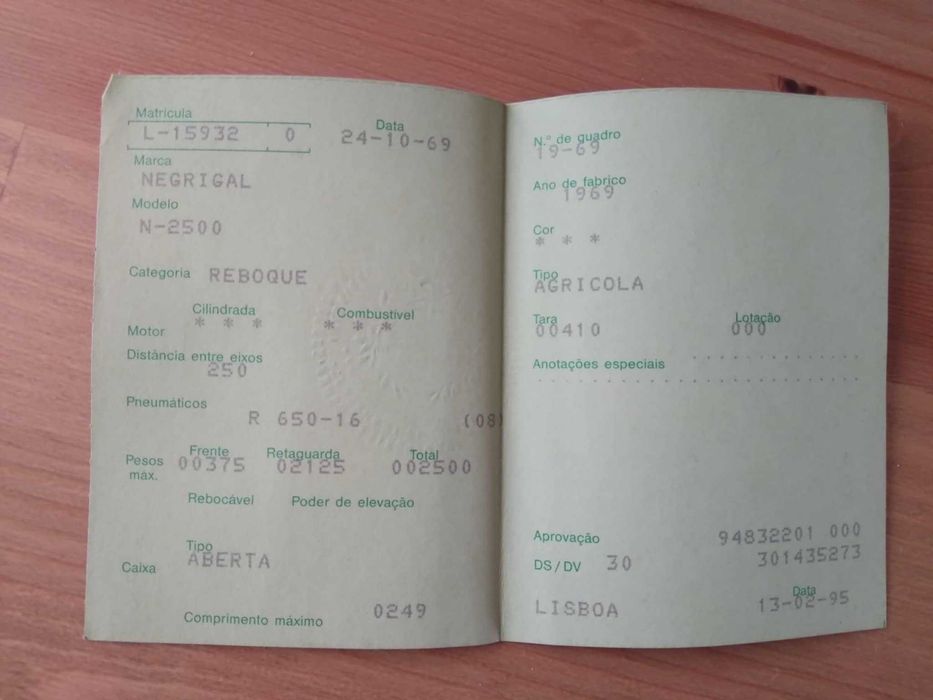 Matrícula
L-15932 0
Data
24-10-69
Marca
NEGRIGAL
Modelo
N-2500
Categoria REBOQUE
Cilindrada Combustível
Motor * * * * * *
Distância entre eixos
250
Pneumáticos
R 650-16 (08)
Frente Retaguarda Total
Pesos máx. 00375 02125 002500
Rebocável Poder de elevação
Tipo
Caixa ABERTA
Comprimento máximo 0249
N.º de quadro
19-69
Ano de fabrico
1969
Cor
* * *
Tipo
AGRICOLA
Tara Lotação
00410 000
Anotações especiais
Aprovação 94832201 000
DS/DV 30 301435273
Data
LISBOA 13-02-95